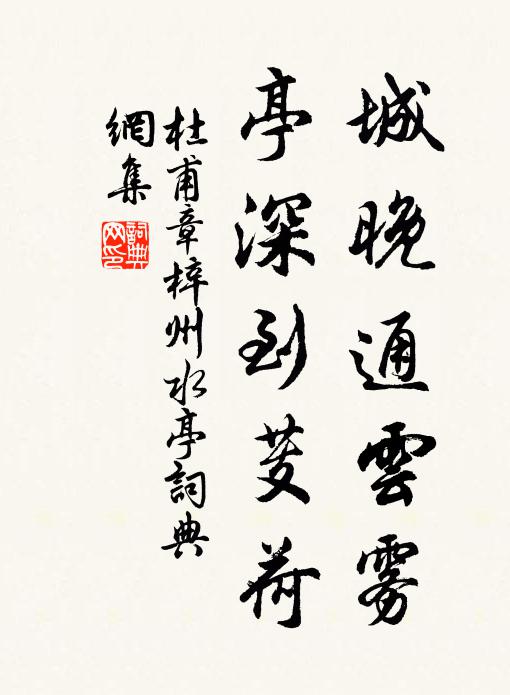 城晚通雲雾
亭深到芰荷
杜甫章梓州水亭詞典
網集
詞典
网印